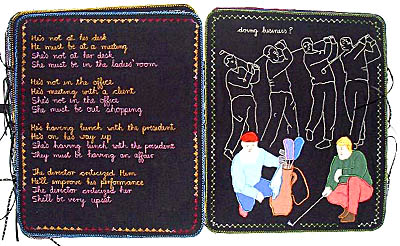 He's not at his desk
He must be at a meeting
She's not at her desk
She must be in the ladies' room
He's not in the office
He's meeting with a client
She's not in the office
She must be out shopping
He's having lunch with the president
He's on his way up
She's having lunch with the president
They must be having an affair
The director criticized Him
He'll improve his performance
The director criticized her
She'll be very upset
doing business?